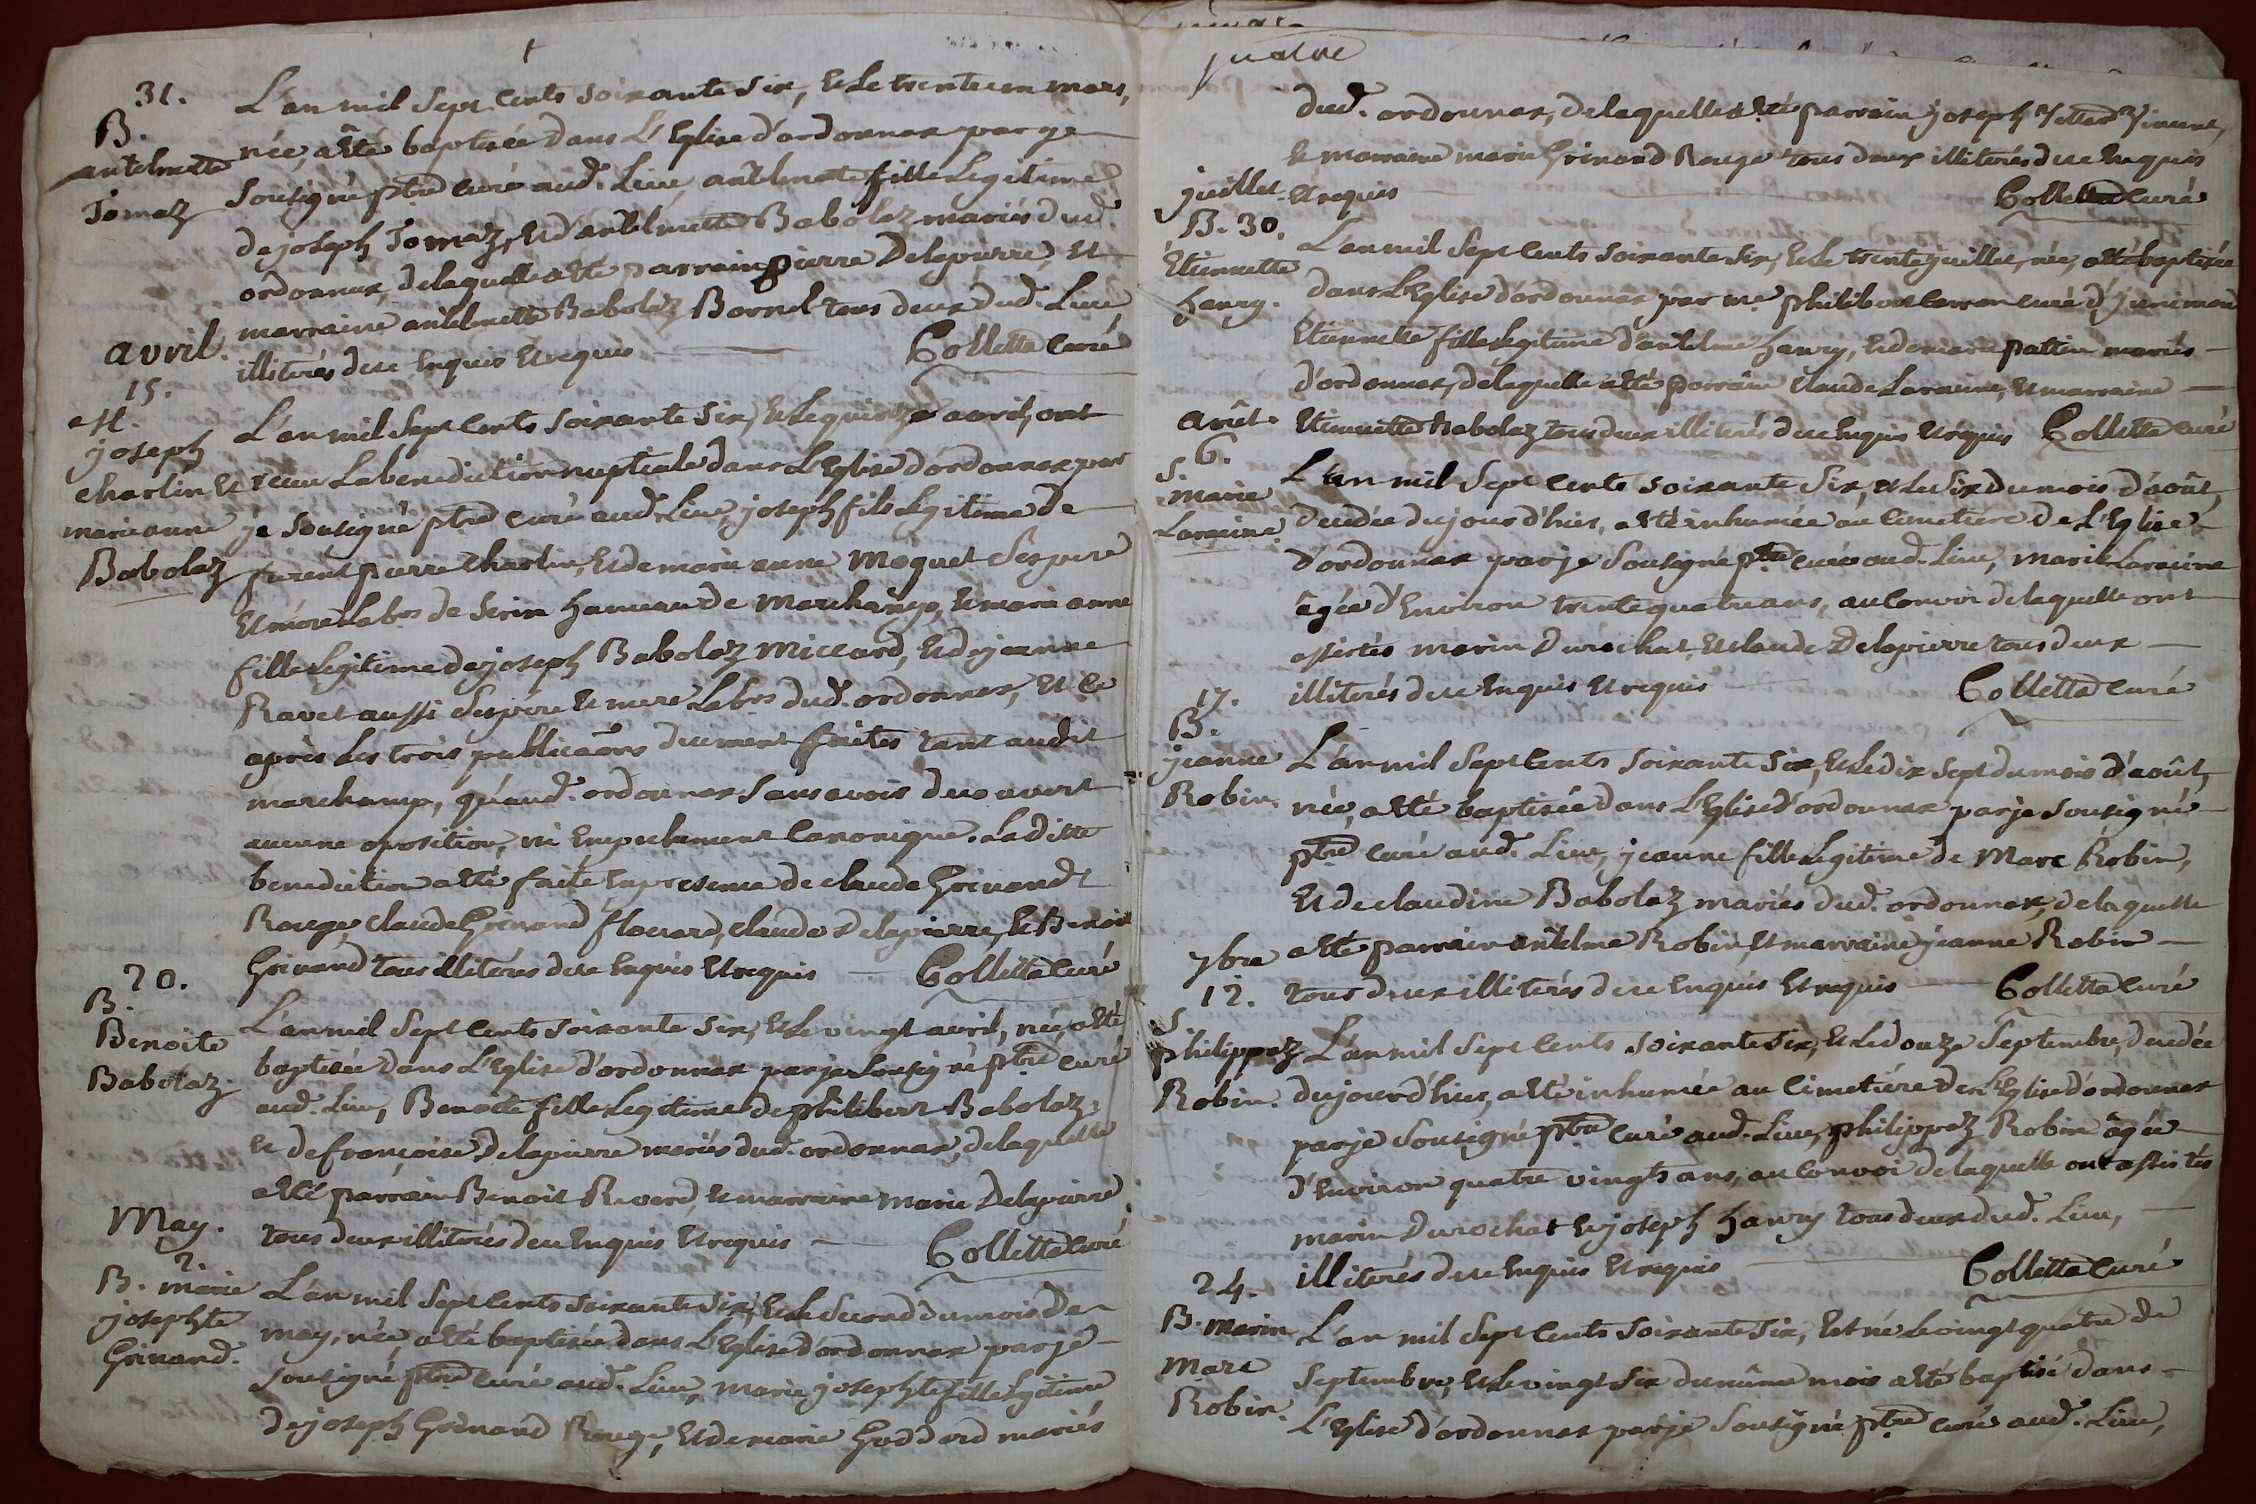 31.
B.
antelmette
Tomaz
L'an mil sept cents soixante six, et le trente un mars,
née, a été baptisée dans l'Eglise d'ordonnax par je
sousigné ptre curé aud. Lieu, antelmette fille Legitime
de joseph Tomaz, et d'antelmette Babolaz mariés dud.
ordonnax, de laquelle a été parrain pierre Delapierre, et
marraine antelmette Babolaz Bornel tous deux dud. Lieu,
illiterés de ce enquis et requis Colletta curé
avril.
15.
M.
joseph
charlin et
marie anne
Babolaz
L'an mil sept cents soixante six, et le quinze avril, ont
recue La benediction nuptiale dans L'Eglise d'ordonnax par
je sousigné ptre curé aud. Lieu, joseph fils legitime de
furent pierre charlin, et de marie anne Moquet ses pere
et mere Labrs de Serin hameau de Marchamp, et marie anne
fille legitime de joseph Babolaz Miccard, et de jeanne
Ravet aussi ses père et mere Labrs dud. ordonnax, et ce
après les trois publicaõns duement faites tant audit
marchamp, qu'aud. ordonnax sans avoir decouvert
aucune oposition, ni empechement canonique. La ditte
benediction a été faite en presence de claude Grinand
Rouge, claude Grinand flouard, claude Delapierre, et Benoit
Grinand tous illiterés de ce enquis et requis Colletta curé
20.
B.
Benoite
Babolaz.
L'an mil sept cents soixante six, et le vingt avril, née, a été
baptisée dans L'Eglise d'ordonnax par je sousigné ptre curé
aud. Lieu, Benoite fille legitime de philibert Babolaz,
et de françoise Delapierre mariés dud. ordonnax, de laquelle
a été parrain Benoit Revert, et marraine marie Delapierre
tous deux illiterés de ce enquis et requis Colletta curé
May.
2.
B. marie
josephte
Grinand.
L'an mil sept cents soixante six, et le second du mois de
may, née, a été baptisée dans L'Eglise d'ordonnax par je
sousigné ptre curé aud. Lieu, marie josephte fille legitime
de joseph Grinand Rouge, et de marie Goddard mariés
quatre
dud. ordonnax, de laquelle a été parrain joseph Vincent,
et marraine marie Grinand Rouge tous deux illiterés de ce enquis
et requis Colletta curé
juillet.
B. 30.
Etiennette
hanry.
L'an mil sept cents soixante six, et le trente juillet, née, a été baptisée
dans L'Eglise d'ordonnax par me. philibert Carron curé d'
Etiennette fille legitime d'antelme hanry, et de marie pattin mariés
d'ordonnax, de laquelle a été parrain claude Laraine, et marraine
Etiennette Babolaz tous deux illiterés de ce enquis et requis Colletta curé
août.
6.
S.
marie
Laraine.
L'an mil sept cents soixante six, et le six du mois d'août,
decedée du jour d'hier, a été inhumée au cimetiere de L'Eglise
d'ordonnax par je sousigné ptre curé aud. Lieu, marie Laraine
âgée d'environ trente quatre ans, au convoi de laquelle ont
assistés marin Durochat, et claude Delapierre tous deux
illiterés de ce enquis et requis Colletta curé
17.
B.
jeanne
Robin.
L'an mil sept cents soixante six, et le dix sept du mois d'août,
née, a été baptisée dans L'Eglise d'ordonnax par je sousigné
ptre curé aud. Lieu, jeanne fille legitime de Marc Robin,
et de claudine Babolaz mariés dud. ordonnax, de laquelle
a été parrain antelme Robin, et marraine jeanne Robin
tous deux illiterés de ce enquis et requis Colletta curé
7bre
12.
S.
philippaz
Robin.
L'an mil sept cents soixante six, et le douze Septembre, decedée
du jour d'hier, a été inhumée au cimetiére de L'Eglise d'ordonnax
par je sousigné ptre curé aud. Lieu, philippaz Robin âgée
d'environ quatre vingts ans, au convoi de laquelle ont assistés
marin Durochat et joseph hanry tous deux dud. Lieu,
illiterés de ce enquis et requis Colletta curé
24.
B. marin
Marc
Robin.
L'an mil sept cents soixante six, est né le vingt quatre de
Septembre, et le vingt six du même mois a été baptisé dans
L'Eglise d'ordonnax par je sousigné ptre curé aud. Lieu,